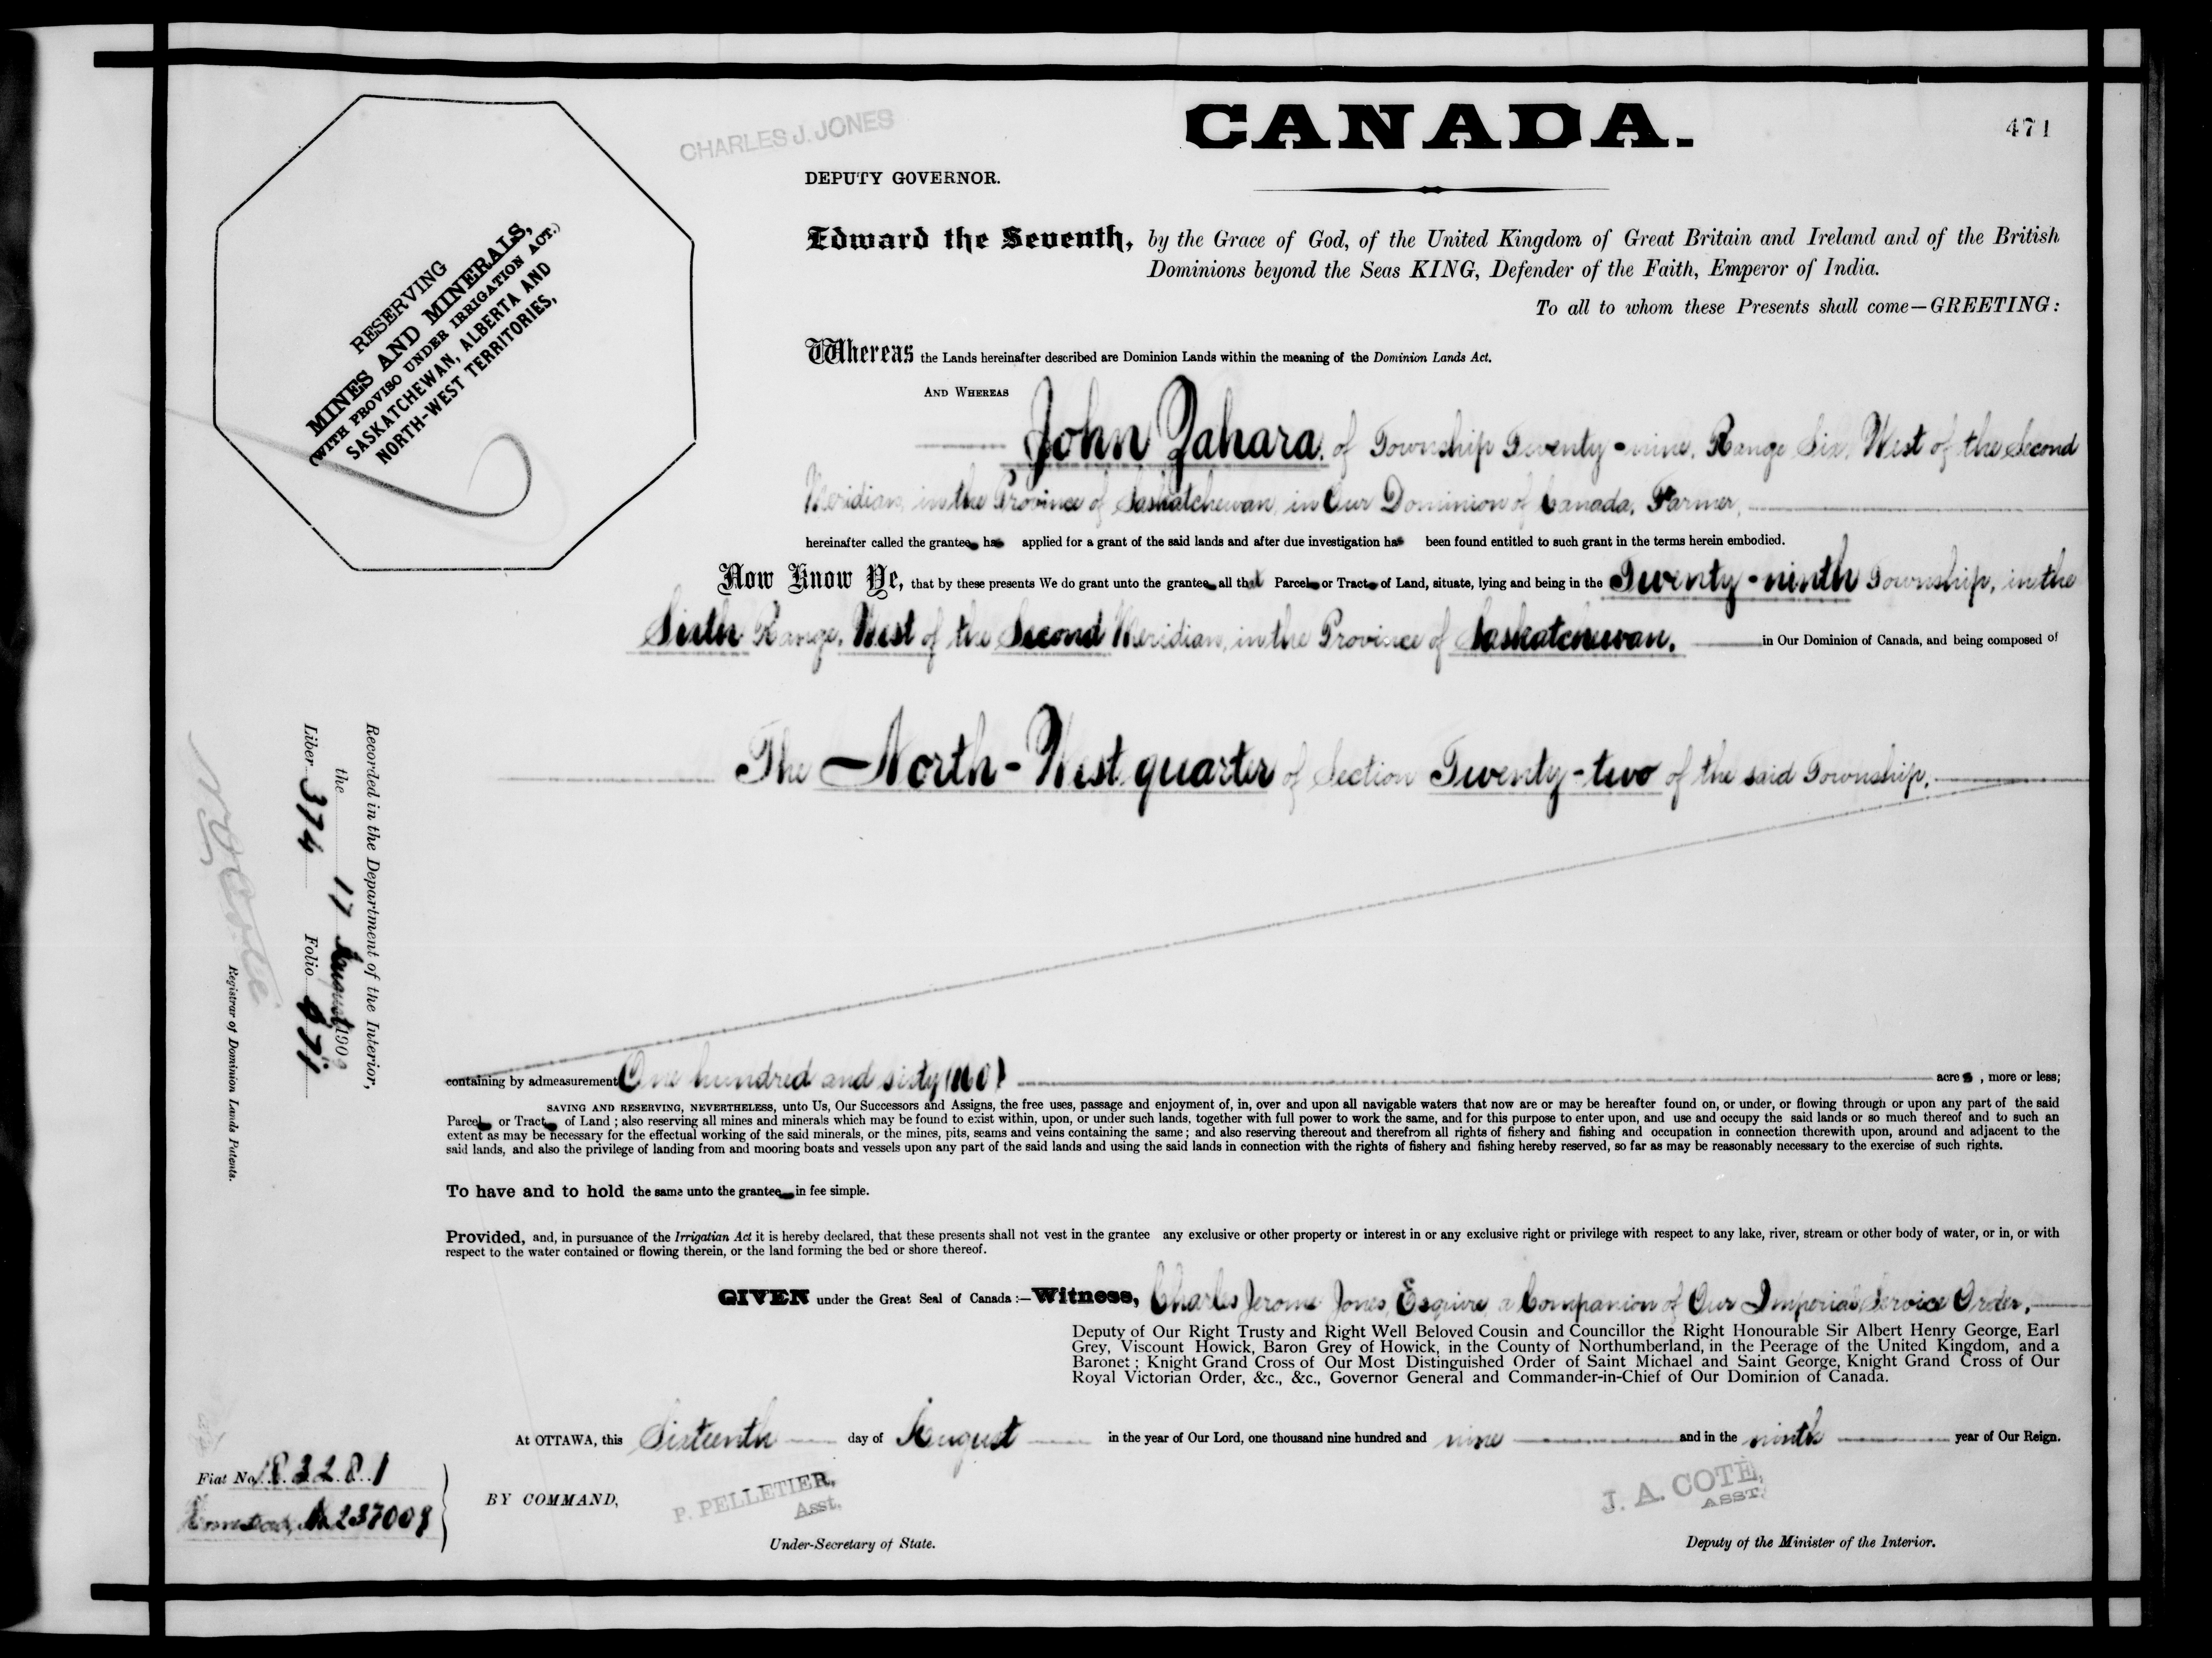 CANADA.
471
CHARLES J. JONES
DEPUTY GOVERNOR.
RESERVING
MINES AND MINERALS,
(WITH PROVISO UNDER IRRIGATION ACT.)
SASKATCHEWAN, ALBERTA AND
NORTH-WEST TERRITORIES,
Edward the Seventh, by the Grace of God, of the United Kingdom of Great Britain and Ireland and of the British
Dominions beyond the Seas KING, Defender of the Faith, Emperor of India.
To all to whom these Presents shall come—GREETING:
Whereas the Lands hereinafter described are Dominion Lands within the meaning of the Dominion Lands Act.
AND WHEREAS
John Zahara, of Township Twenty-nine, Range Six, West of the Second
Meridian, in the Province of Saskatchewan, in Our Dominion of Canada, Farmer,
hereinafter called the grantee has applied for a grant of the said lands and after due investigation has been found entitled to such grant in the terms herein embodied.
Now Know Ye, that by these presents We do grant unto the grantee all that Parcel or Tract of Land, situate, lying and being in the Twenty-ninth Township, in the
Sixth Range, West of the Second Meridian, in the Province of Saskatchewan, in Our Dominion of Canada, and being composed of
The North-West quarter of Section Twenty-two of the said Township,
containing by admeasurement One hundred and sixty (160) acres, more or less;
SAVING AND RESERVING, NEVERTHELESS, unto Us, Our Successors and Assigns, the free uses, passage and enjoyment of, in, over and upon all navigable waters that now are or may be hereafter found on, or under, or flowing through or upon any part of the said
Parcel or Tract of Land; also reserving all mines and minerals which may be found to exist within, upon, or under such lands, together with full power to work the same, and for this purpose to enter upon, and use and occupy the said lands or so much thereof and to such an
extent as may be necessary for the effectual working of the said minerals, or the mines, pits, seams and veins containing the same; and also reserving thereout and therefrom all rights of fishery and fishing and occupation in connection therewith upon, around and adjacent to the
said lands, and also the privilege of landing from and mooring boats and vessels upon any part of the said lands and using the said lands in connection with the rights of fishery and fishing hereby reserved, so far as may be reasonably necessary to the exercise of such rights.
To have and to hold the same unto the grantee in fee simple.
Provided, and, in pursuance of the Irrigatian Act it is hereby declared, that these presents shall not vest in the grantee any exclusive or other property or interest in or any exclusive right or privilege with respect to any lake, river, stream or other body of water, or in, or with
respect to the water contained or flowing therein, or the land forming the bed or shore thereof.
GIVEN under the Great Seal of Canada:—Witness, Charles Jerome Jones, Esquire, a Companion of Our Imperial Service Order,
Deputy of Our Right Trusty and Right Well Beloved Cousin and Councillor the Right Honourable Sir Albert Henry George, Earl
Grey, Viscount Howick, Baron Grey of Howick, in the County of Northumberland, in the Peerage of the United Kingdom, and a
Baronet; Knight Grand Cross of Our Most Distinguished Order of Saint Michael and Saint George, Knight Grand Cross of Our
Royal Victorian Order, &c., &c., Governor General and Commander-in-Chief of Our Dominion of Canada.
At OTTAWA, this Sixteenth day of August in the year of Our Lord, one thousand nine hundred and nine and in the ninth year of Our Reign.
BY COMMAND,
P. PELLETIER,
Asst.
Under-Secretary of State.
J. A. COTE,
ASST.
Deputy of the Minister of the Interior.
Recorded in the Department of the Interior,
the 17 August 1909
Liber 374 Folio 471
N O Coté
Registrar of Dominion Lands Patents.
Fiat No. 183281
Homestead,